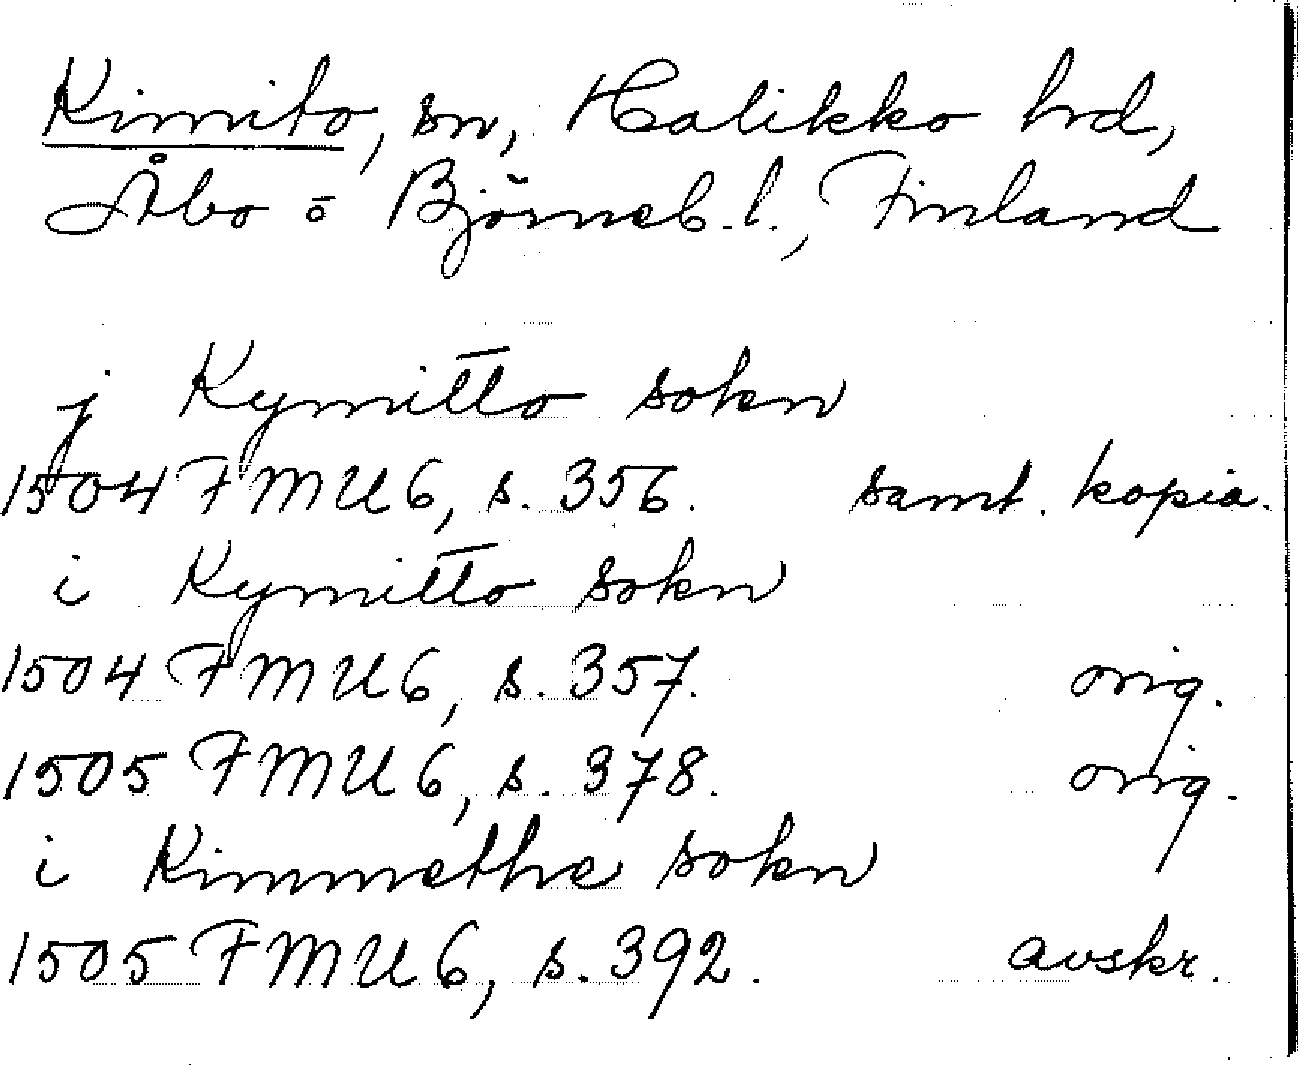 Kimito, sn, Halikko hrd,
Åbo o Björneb. l., Finland
j Kymitto sokn
1504 FMU 6, s. 356. samt. kopia.
i Kymitto sokn
1504 FMU 6, s. 357. orig.
1505 FMU 6, s. 378. orig.
i Kimmethe sokn
1505 FMU 6, s. 392. avskr.